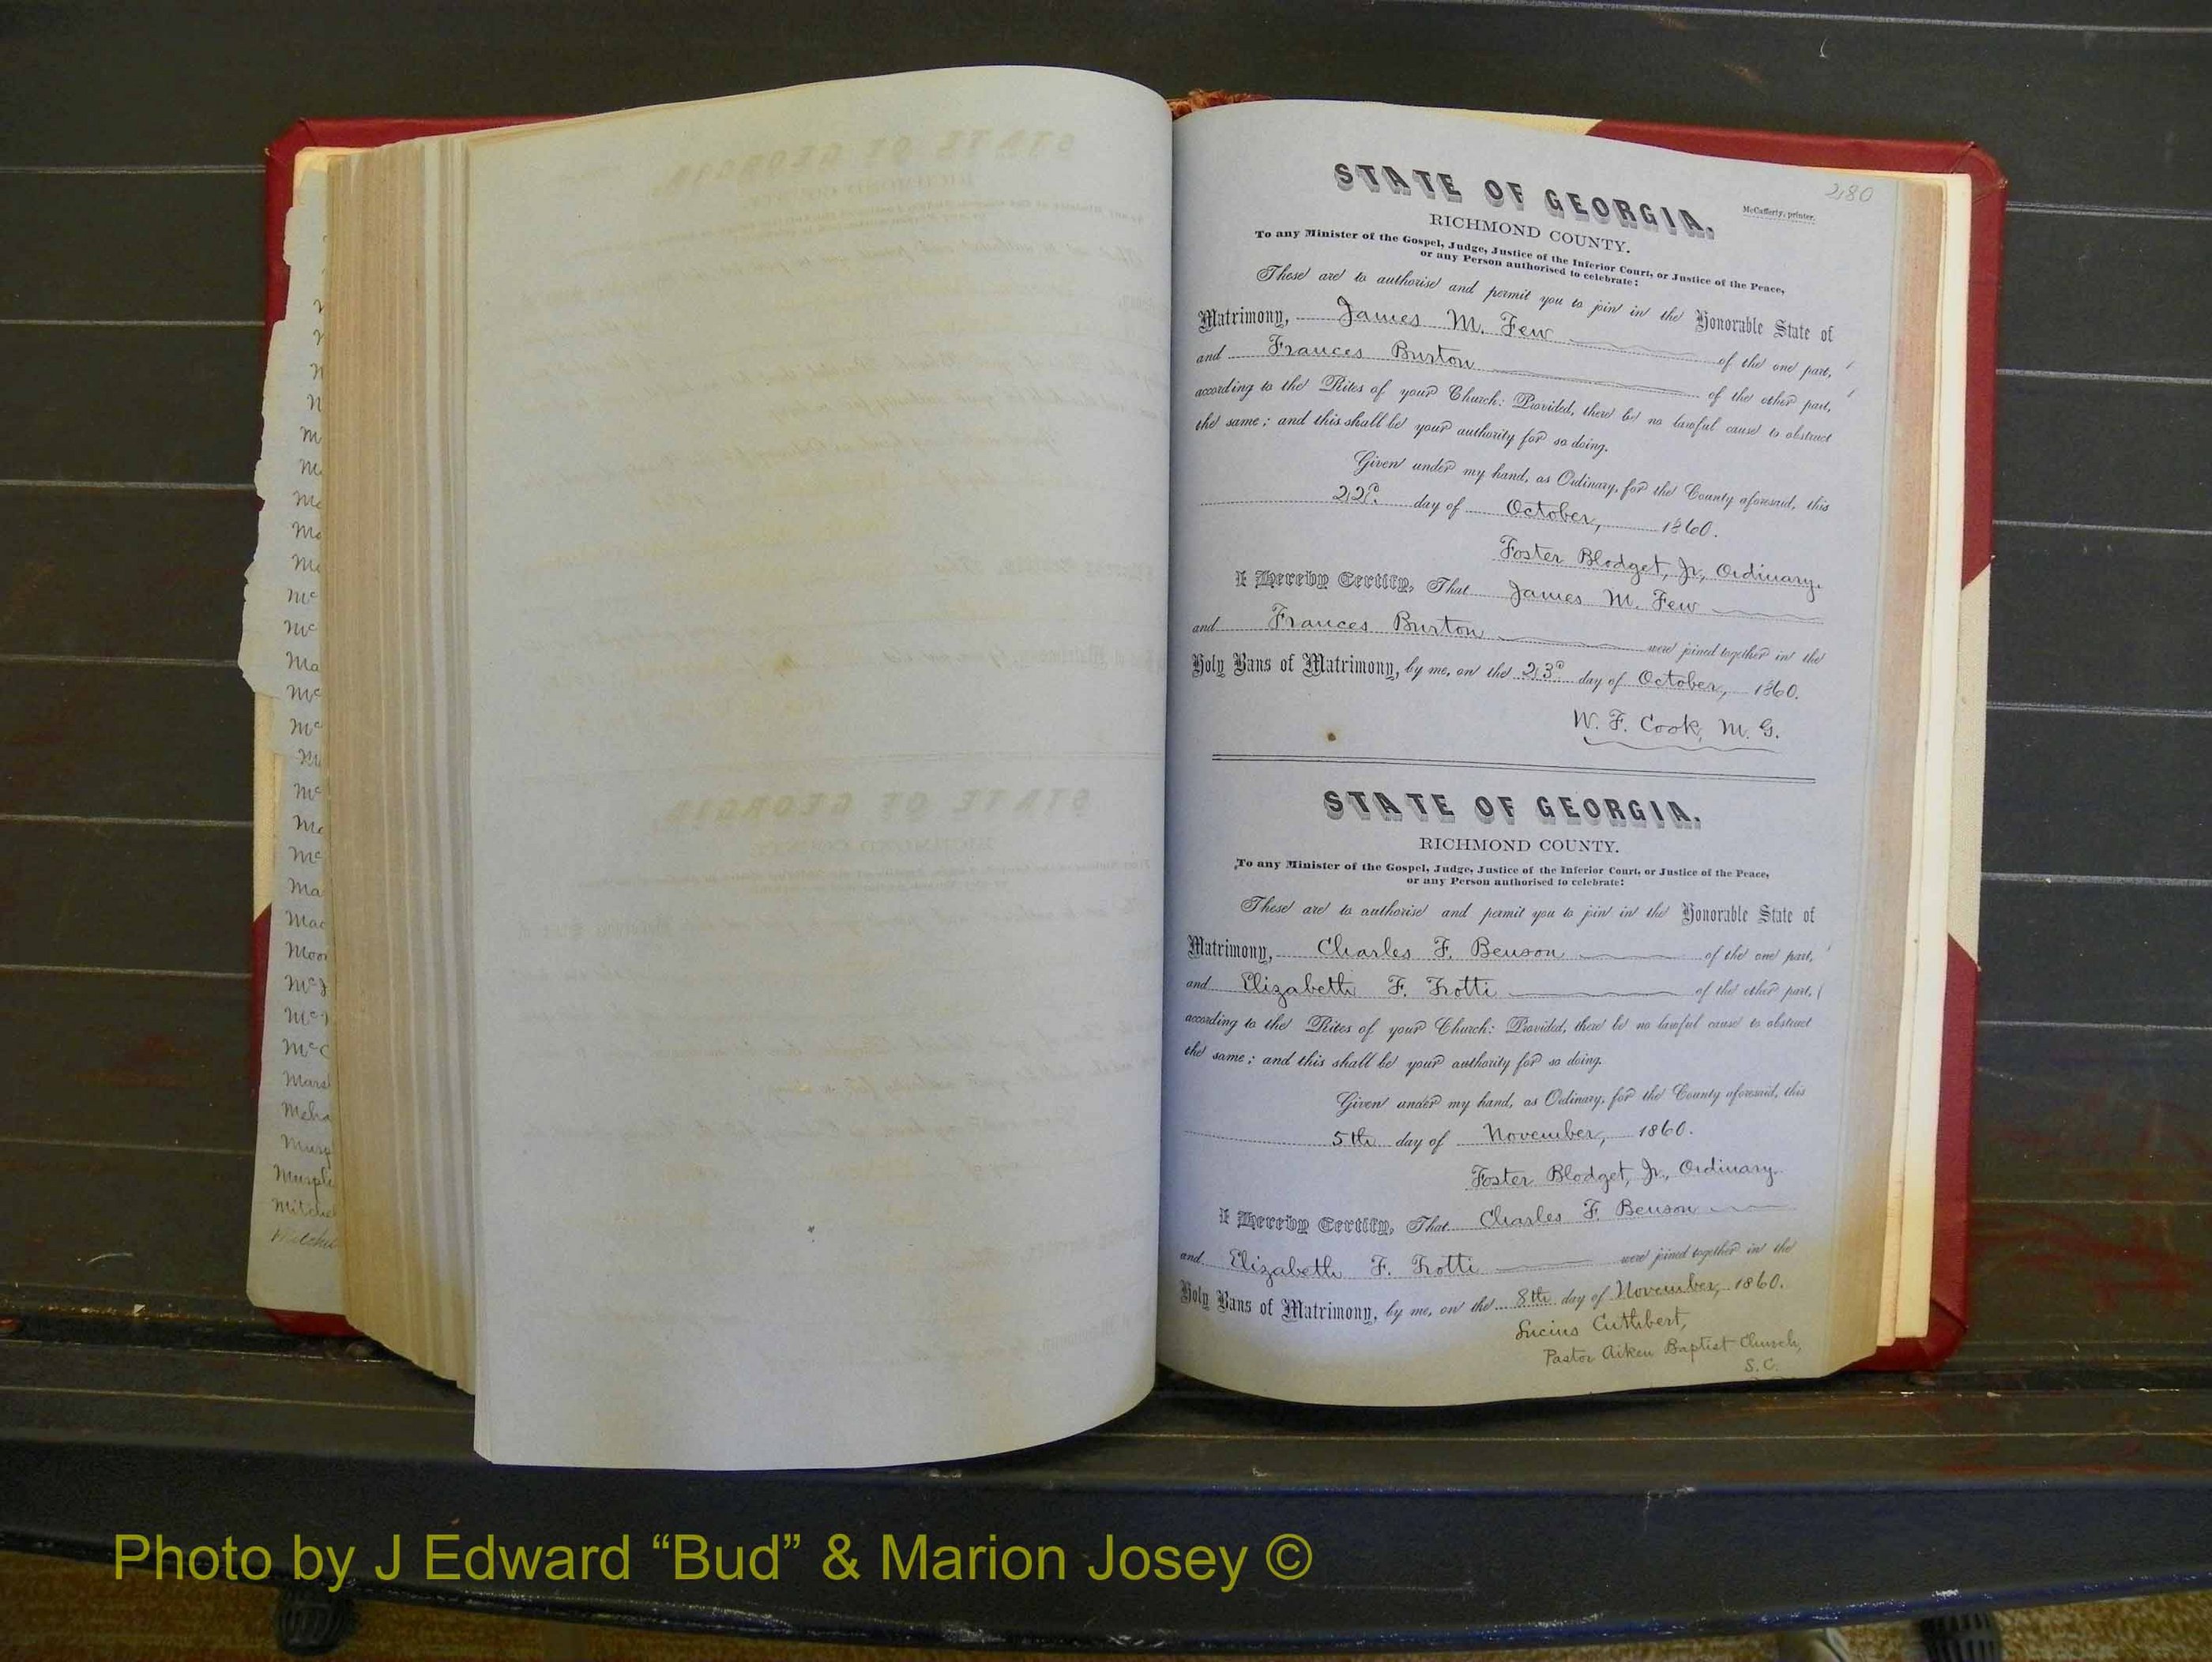 280
STATE OF GEORGIA,
McCafferty, printer.
RICHMOND COUNTY.
To any Minister of the Gospel, Judge, Justice of the Inferior Court, or Justice of the Peace,
or any Person authorised to celebrate:
These are to authorise and permit you to join in the Honorable State of
Matrimony, James M. Few of the one part,
and Frances Burton of the other part,
according to the Rites of your Church: Provided, there be no lawful cause to obstruct
the same; and this shall be your authority for so doing.
Given under my hand, as Ordinary, for the County aforesaid, this
22d. day of October, 1860.
Foster Blodget, Jr, Ordinary.
I Hereby Certify, That James M. Few
and Frances Burton were joined together in the
Holy Bans of Matrimony, by me, on the 23d day of October, 1860.
W. F. Cook, M. G.
STATE OF GEORGIA,
RICHMOND COUNTY.
To any Minister of the Gospel, Judge, Justice of the Inferior Court, or Justice of the Peace,
or any Person authorised to celebrate:
These are to authorise and permit you to join in the Honorable State of
Matrimony, Charles F. Benson of the one part,
and Elizabeth F. Trotti of the other part,
according to the Rites of your Church: Provided, there be no lawful cause to obstruct
the same; and this shall be your authority for so doing.
Given under my hand, as Ordinary, for the County aforesaid, this
5th day of November, 1860.
Foster Blodget, Jr., Ordinary.
I Hereby Certify, That Charles F. Benson
and Elizabeth F. Trotti were joined together in the
Holy Bans of Matrimony, by me, on the 8th day of November, 1860.
Lucius Cuthbert,
Pastor Aiken Baptist Church,
S.C.
Photo by J Edward “Bud” & Marion Josey ©